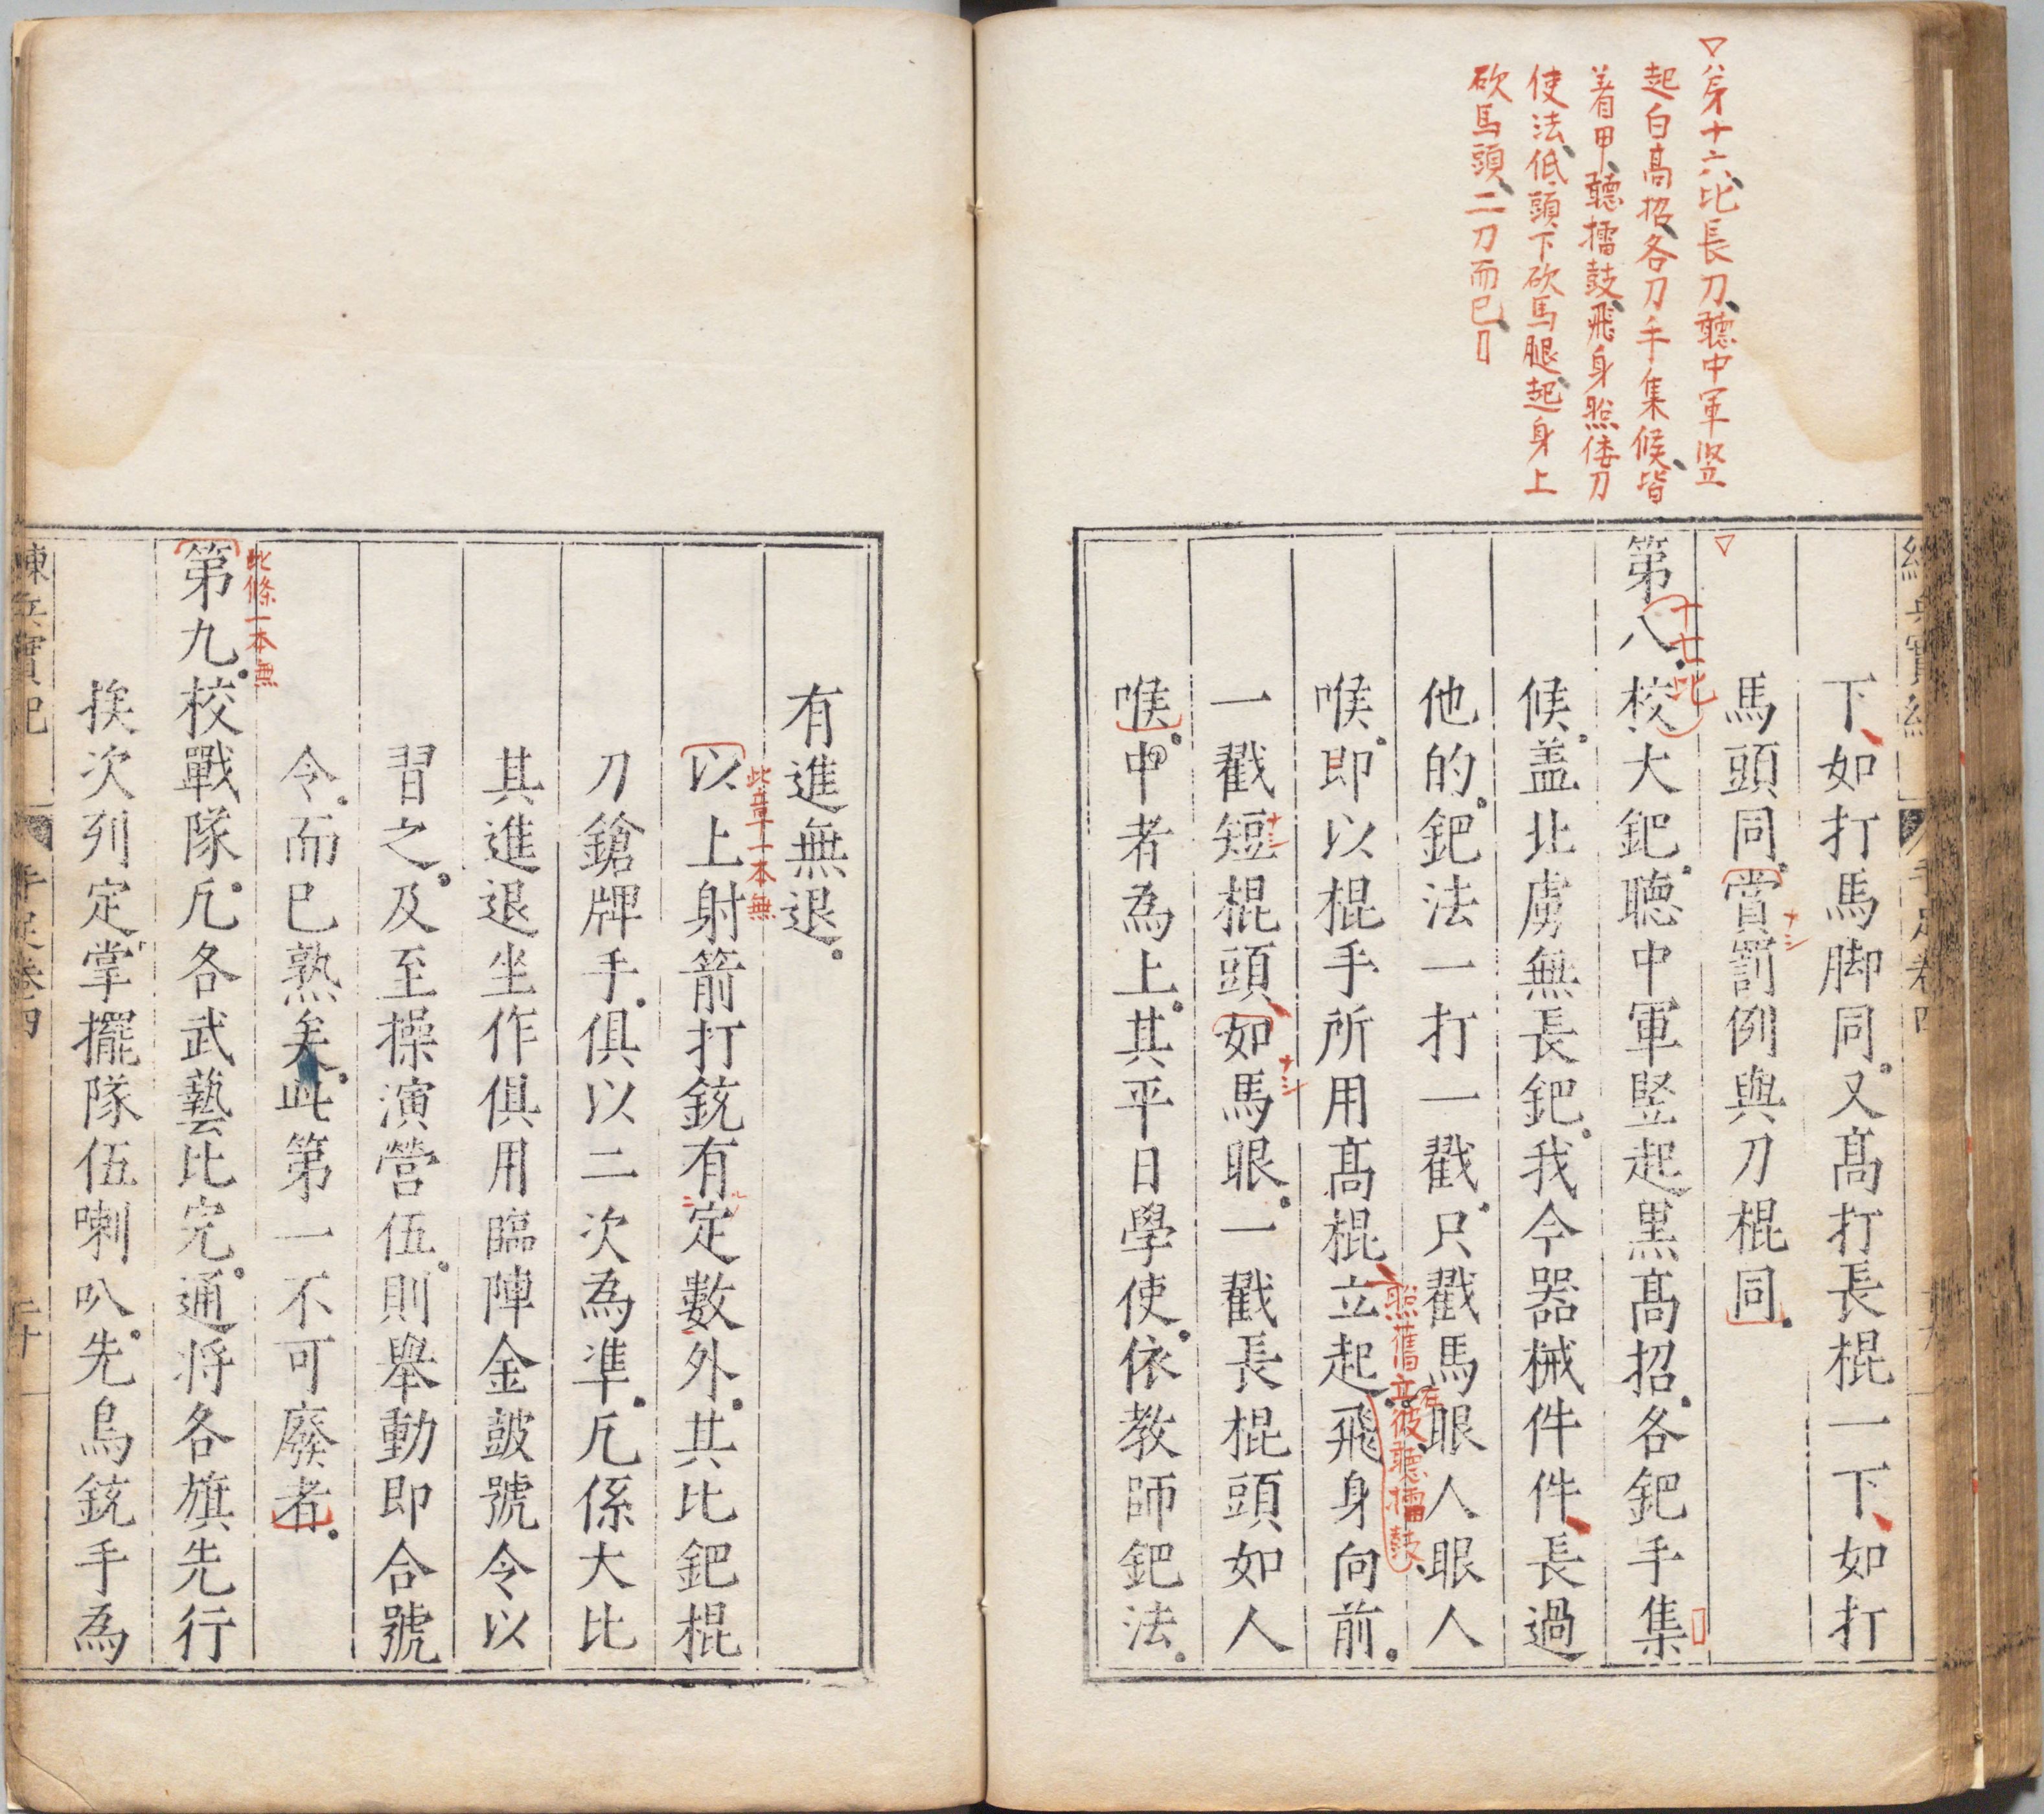 ▽第十六比長刀聽中軍竪
起白高招各刀手集候皆
着甲聽擂鼓飛身照倭刀
使法低頭下砍馬腿起身上
砍馬頭二刀而已
下如打馬脚同又髙打長棍一下如打
馬頭同賞罰例與刀棍同
ナシ
▽
第八校大鈀聽中軍竪起黒髙招各鈀手集
十七比
候盖北虜無長鈀我今器械件件長過
他的鈀法一打一戳只戳馬眼人眼人
右
喉即以棍手所用髙棍立起飛身向前
照舊立彼聽擂鼓
一戳短棍頭如馬眼一戳長棍頭如人
ナシ
ナシ
喉中者為上其平日學使依教師鈀法
有進無退
此章一本無
以上射箭打銃有定數外其比鈀棍
刀鎗牌手俱以二次為凖凡係大比
其進退坐作俱用臨陣金鼓號令以
習之及至操演營伍則舉動即合號
令而已熟矣此第一不可廢者
此條一本無
第九校戰隊凡各武藝比完通将各旗先行
挨次列定掌擺隊伍喇叭先鳥銃手為
練兵實紀 卷四 二十